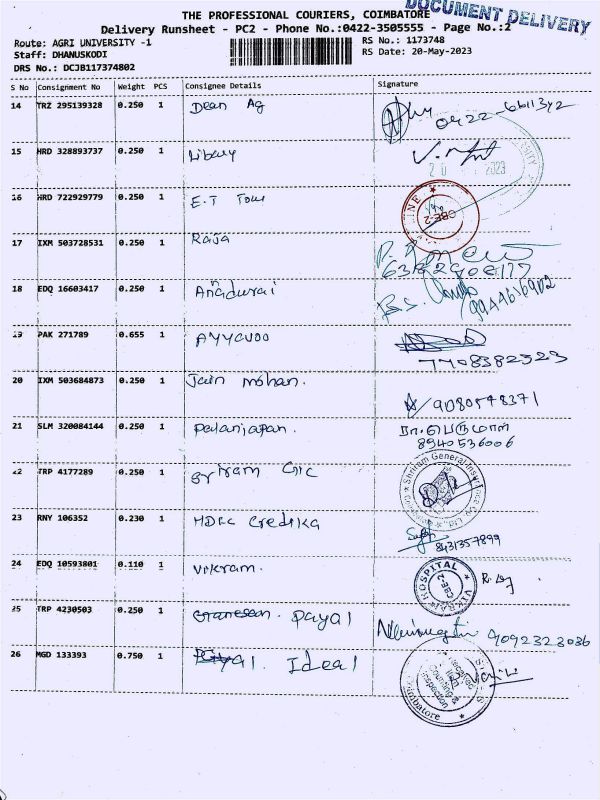 THE PROFESSIONAL COURIERS, COIMBATORE
DOCUMENT DELIVERY
Delivery Runsheet - PC2 - Phone No.:0422-3505555 - Page No.:2
Route: AGRI UNIVERSITY -1 RS No.: 1173748
Staff: DHANUSKODI RS Date: 20-May-2023
DRS No.: DCJB117374802
S No Consignment No Weight PCS Consignee Details Signature
14 TRZ 295139328 0.250 1 Dean Ag
15 HRD 328893737 0.250 1
16 HRD 722929779 0.250 1 E.T
17 IXM 503728531 0.250 1 Raja
18 EDQ 16603417 0.250 1 Annadurai
19 PAK 271789 0.655 1 7708382323
20 IXM 503684873 0.250 1 Jain mohan. 9080548371
21 SLM 320084144 0.250 1 நா.பெருமாள்
8940536006
22 TRP 4177289 0.250 1 Shriram General Insurance
23 RNY 106352 0.230 1 HDFC Credika
8431357899
24 EDQ 10593801 0.110 1 Vikram. HOSPITAL CBE-2
25 TRP 4230503 0.250 1 Payal 9092323036
26 MGD 133393 0.750 1 Ideal